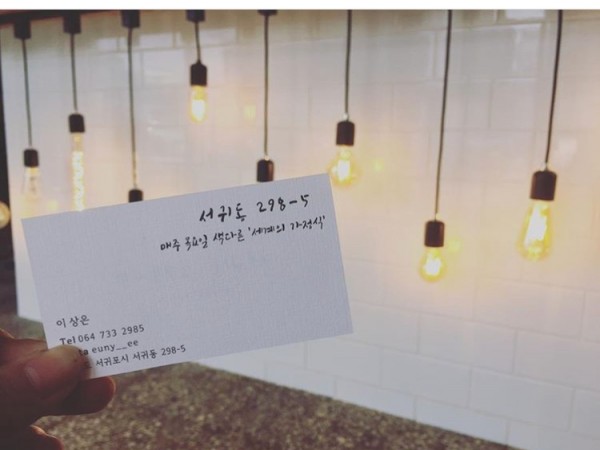 서귀동 298-5
매주 목요일 색다른 '세계의 가정식'
이상은
Tel 064 733 2985
euny__ee
서귀포시 서귀동 298-5